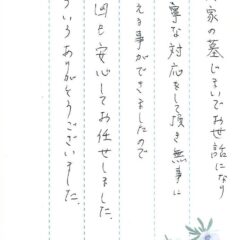 家の墓じまいでお世話になり
寧な対応をして頂き無事に
える事ができましたので
回も安心してお任せしました。
ういろありがとうございました。